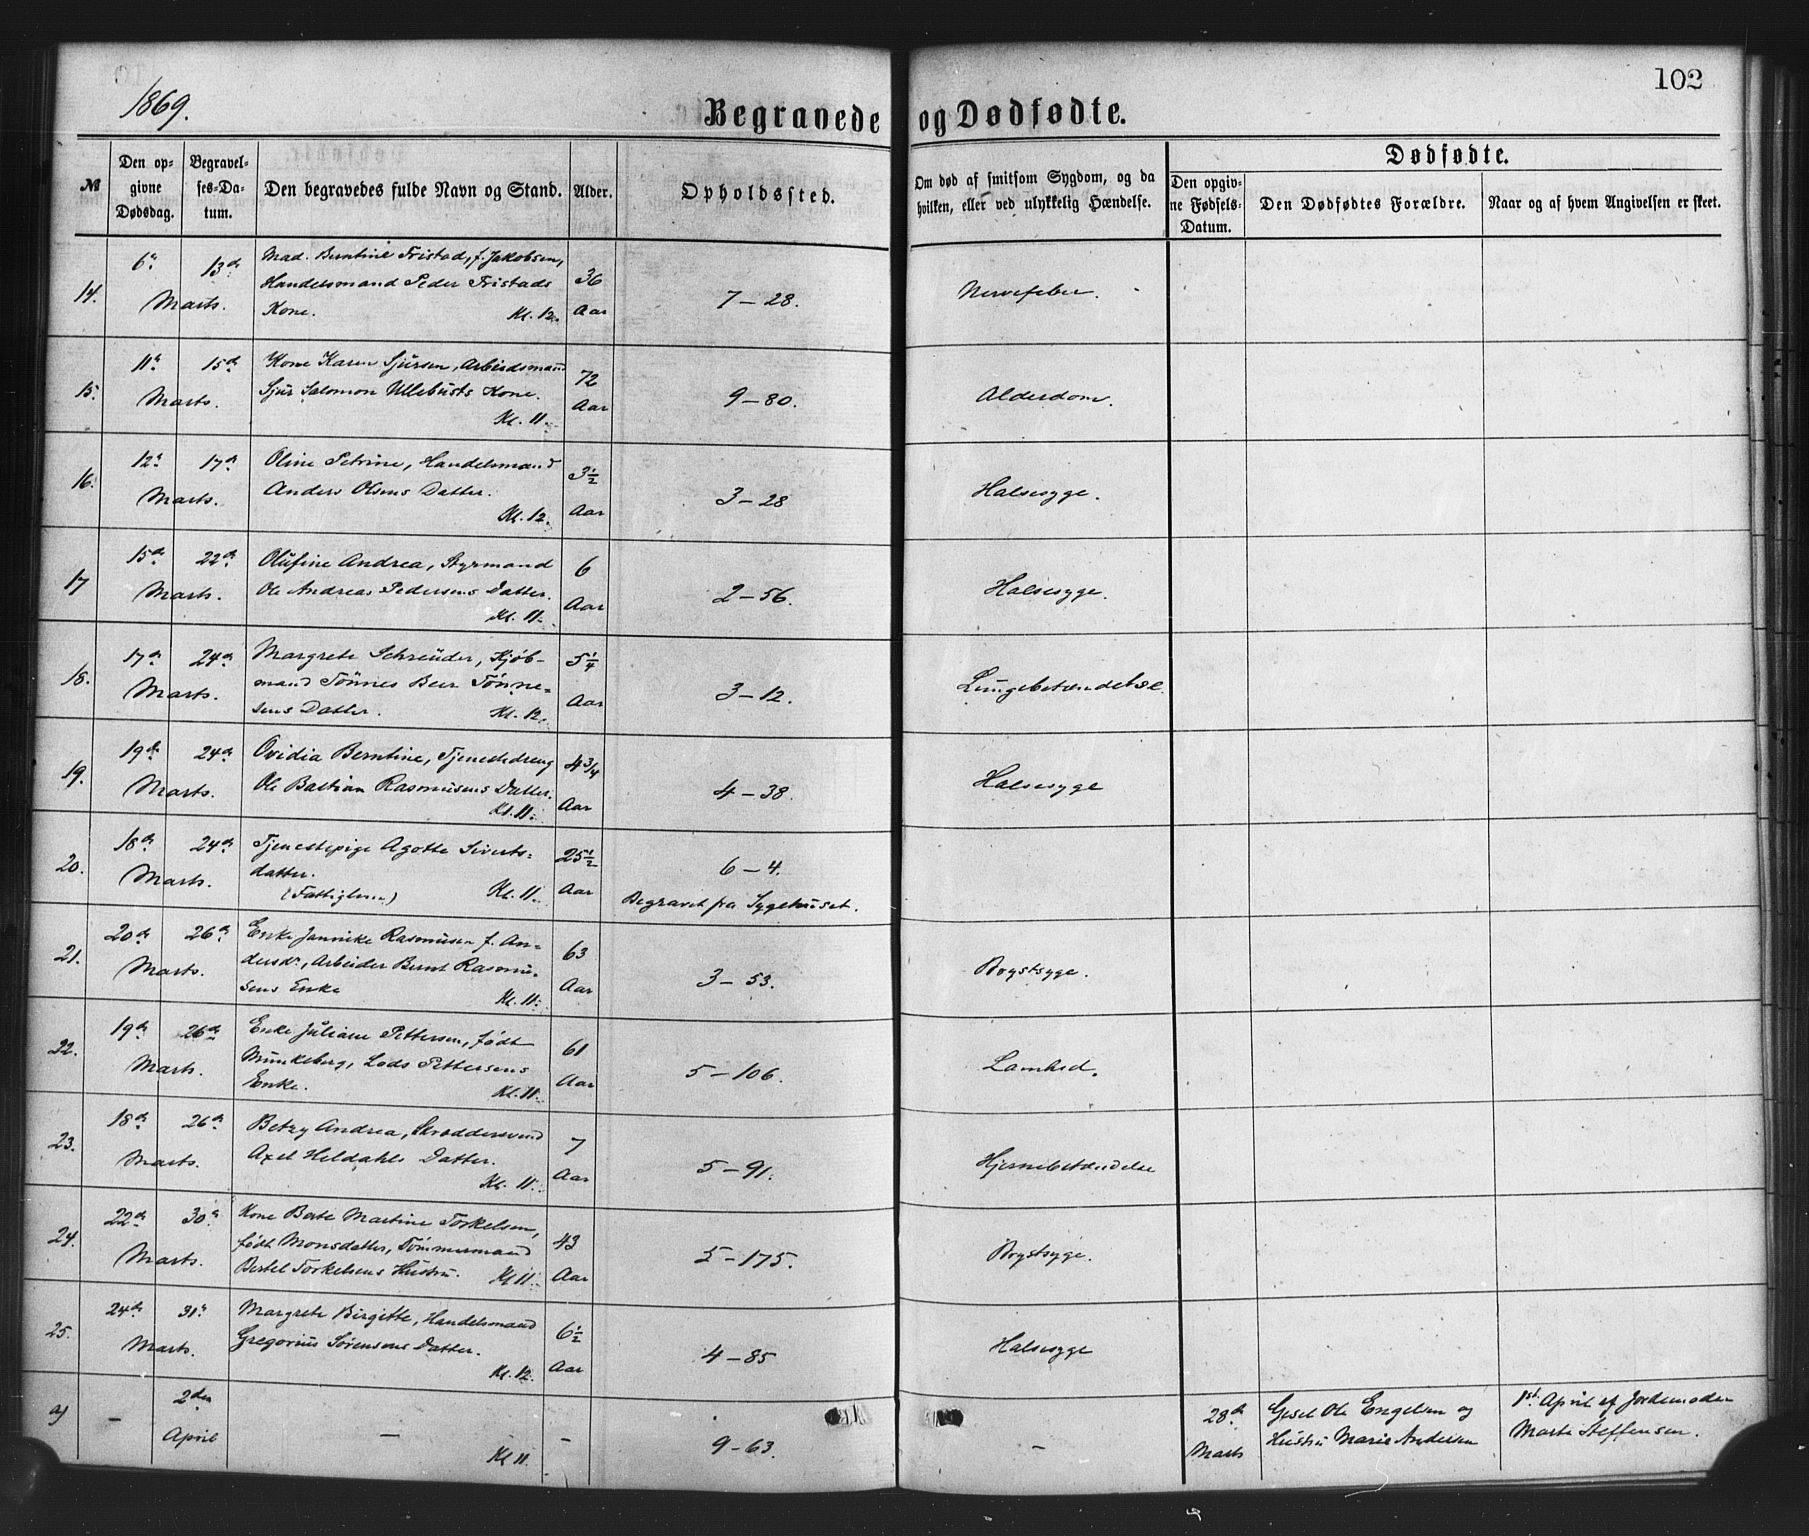 1869.
102
Begravede og Dødfødte.
№
Den opgivne Dødsdag.
Begravelses-Datum.
Den begravedes fulde Navn og Stand.
Alder.
Opholdssted.
Om død af smitsom Sygdom, og da hvilken, eller ved ulykkelig Hændelse.
Dødfødte.
Den opgivne Fødsels-Datum.
Den Dødfødtes Forældre.
Naar og af hvem Angivelsen er skeet.
14. 6te 13de Marts.
Mad. Berntine Tristad, f. Jakobsen,
Handelsmand Peder Tristads
Kone. Kl. 12.
36 Aar
7 – 28.
Nervefeber.
15. 11te 15de Marts.
Kone Karen Sjursen, Arbeidsmand
Sjur Salomon Ullebusts Kone.
Kl. 11.
72 Aar
9 – 80.
Alderdom.
16. 12te 17de Marts.
Oline Petrine, Handelsmand
Anders Olsens Datter.
Kl. 12.
3½ Aar
3 – 28
Halssyge.
17 15de 22de Marts.
Olufine Andrea, Styrmand
Ole Andreas Pedersens Datter.
Kl. 11.
6 Aar
2 – 56.
Halssyge.
18. 17de 24de Marts.
Margrete Schreuder, Kjøb-
mand Tönnes Beer Tönne-
sens Datter. Kl. 12.
5¼ Aar
3 – 12.
Lungebetændelse.
19. 19de 24de Marts.
Ovidia Berntine, Tjenestedreng
Ole Bastian Rasmusens Datter.
Kl. 11.
4¾ Aar
4 – 38.
Halssyge
20. 18de 24de Marts.
Tjenestepige Agotte Siverts-
datter.
(Fattiglem) Kl. 11.
25½ Aar
6 – 4.
Begravet fra Sygehuset.
21. 20de 26de Marts.
Enke Jannike Rasmusen f. An-
dersdr., Arbeider Bernt Rasmu-
sens Enke Kl. 11.
63 Aar
3 – 53.
Brystsyge.
22. 19de 26de Marts.
Enke Juliane Pettersen, født
Munkeberg, Lods Pettersens
Enke. Kl. 11.
61 Aar
5 – 106.
Lamhed.
23. 18de 26de Marts.
Betzy Andrea, Skræddersvend
Axel Heldahls Datter.
Kl. 11.
7 Aar
5 – 91.
Hjernebetændelse
24. 22de 30te Marts.
Kone Berte Martine Torkelsen,
født Monsdatter, Tømmermand
Bertel Torkelsens Hustru. Kl 11.
43 Aar
5 – 175.
Brystsyge.
25. 24de 31te Marts.
Margrete Birgitte, Handelsmand
Gregorius Sørensens Datter.
Kl. 12.
6½ Aar
4 – 85
Halssyge
a) – 2den April
– Kl 11. –
9 – 63.
–
28de Marts
Gesel Ole Engelsen og
Hustru Marie Andersen
1st. April af Jordemoder
Marte Steffensen.